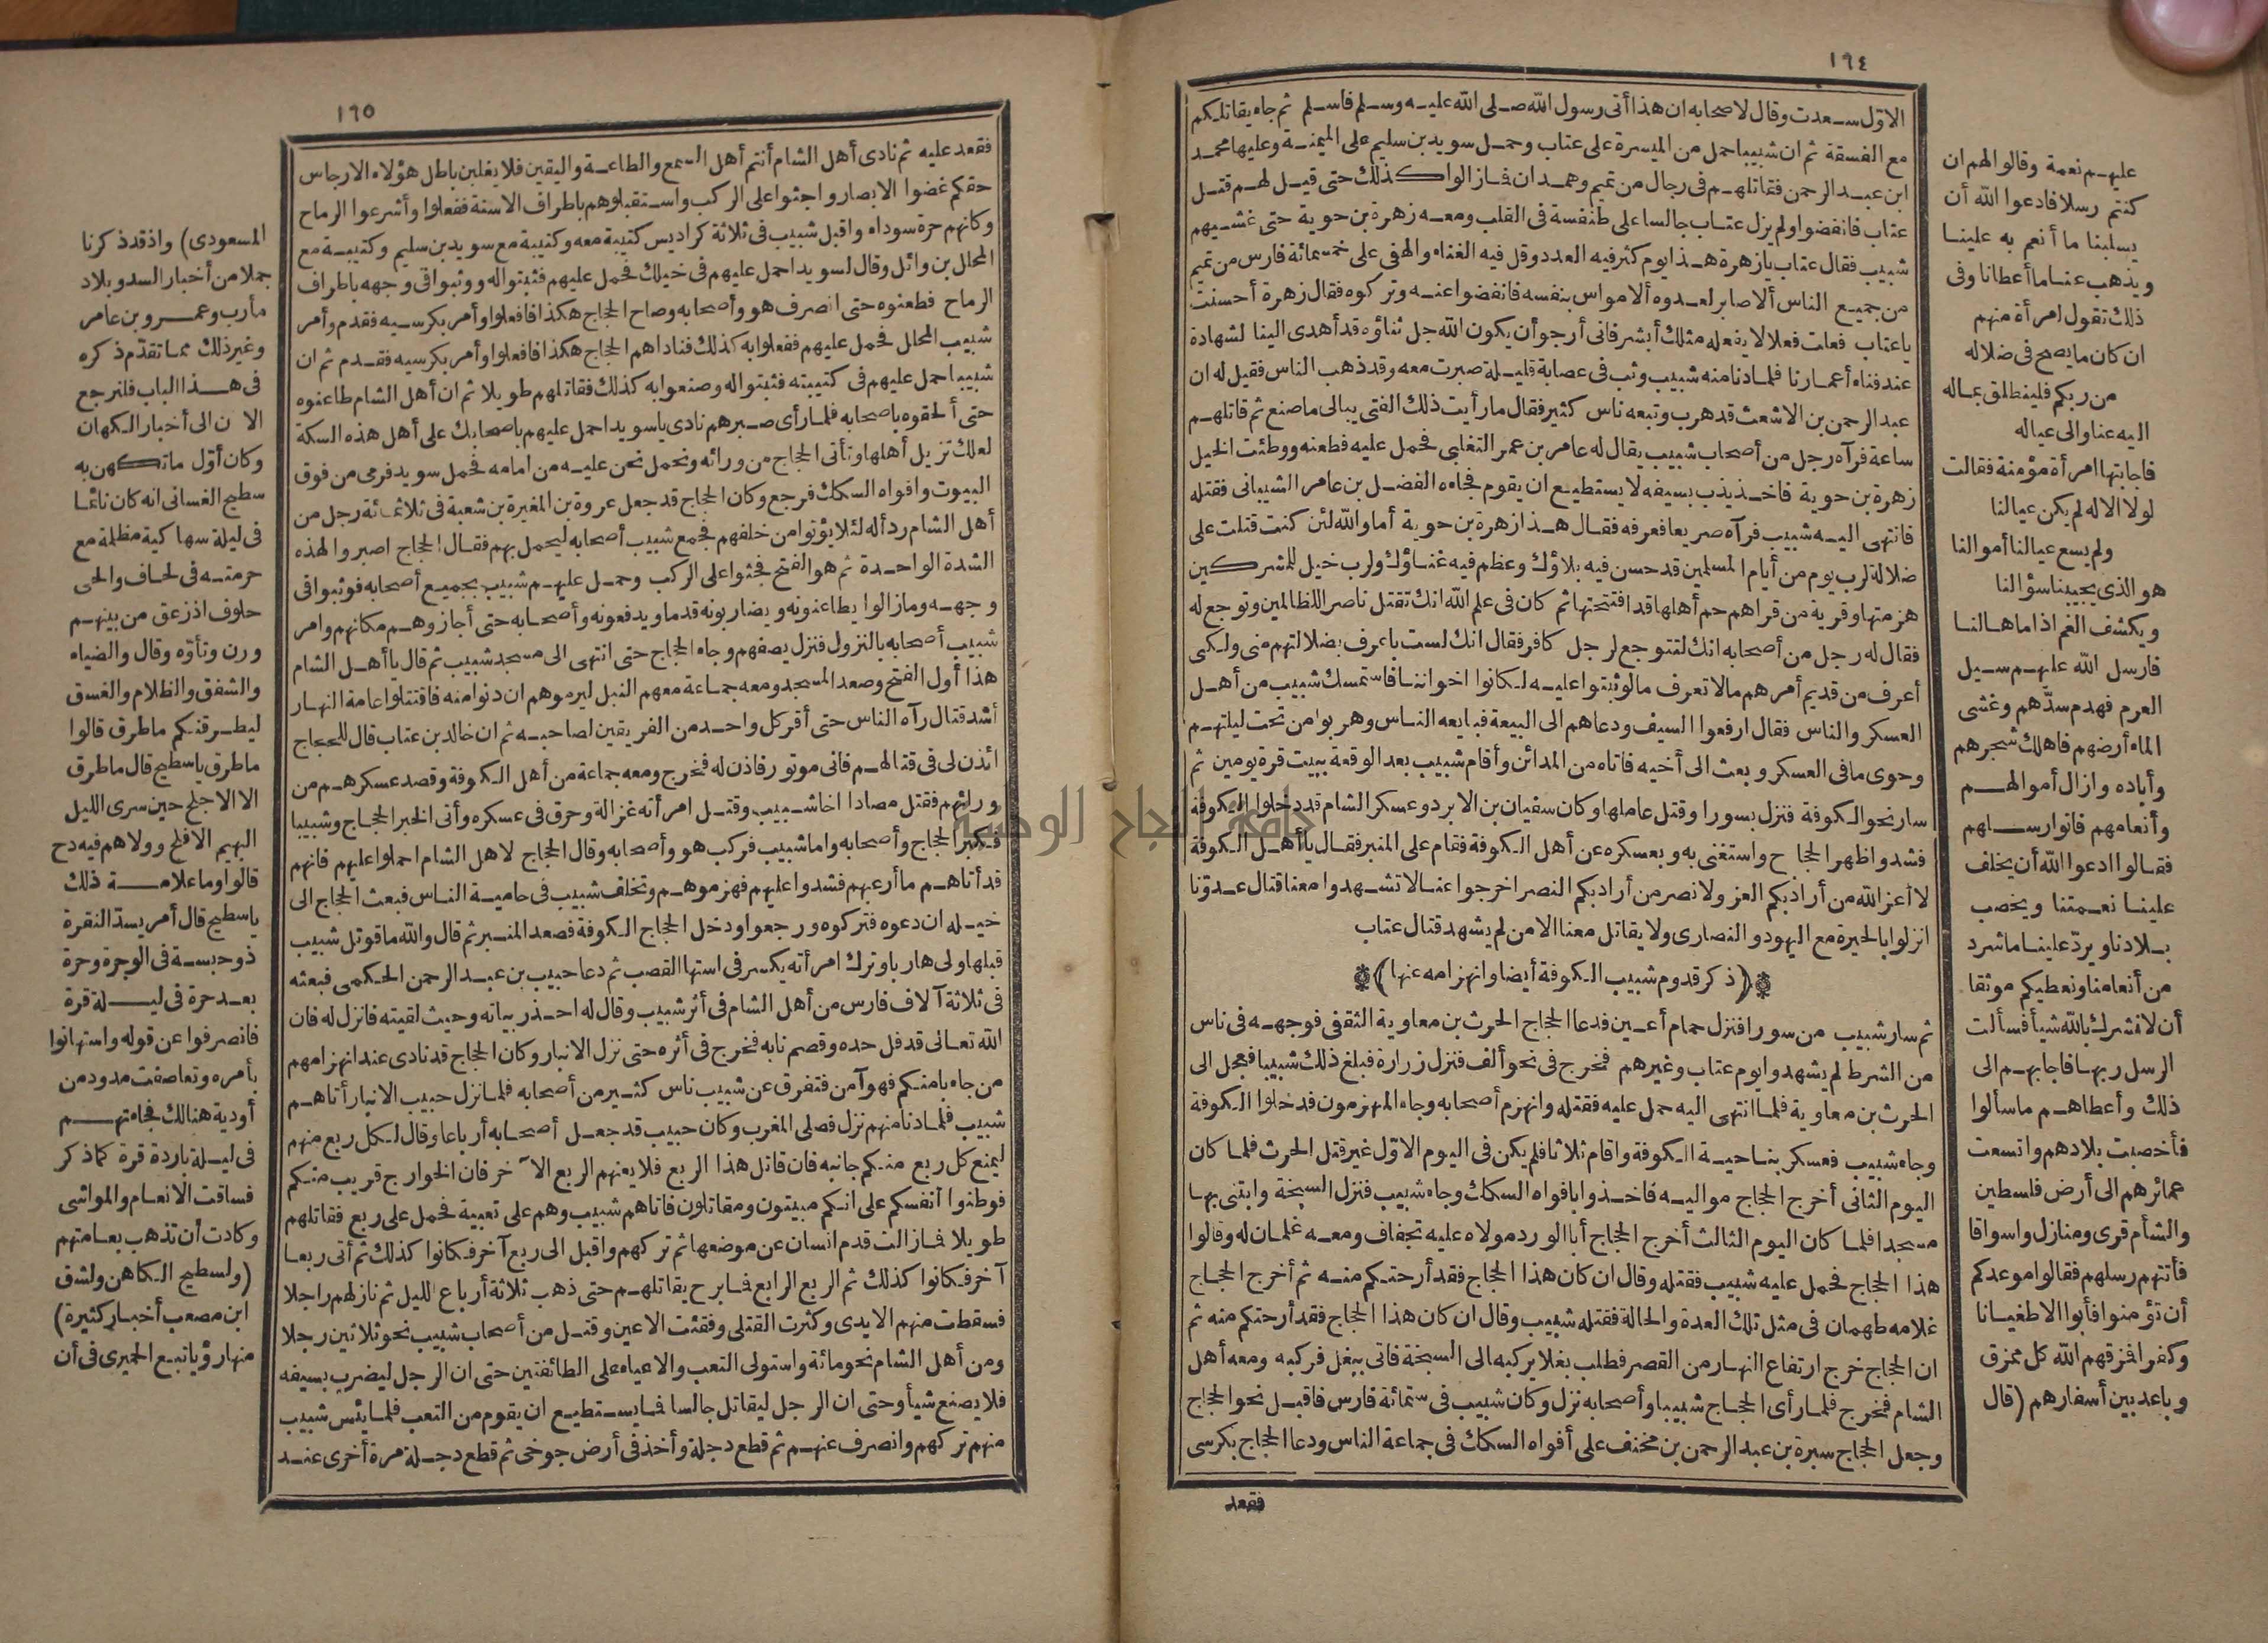 ١٦٤
الاوّل سعدت وقال لاصحابه ان هذا أتى رسول الله صلى الله عليه وسلم فاسلم ثم جاء يقاتلكم
مع الفسقة ثم ان شبيبا حمل من الميسرة على عتاب وحمل سويد بن سليم على الميمنة وعليها محمد
ابن عبد الرحمن فقاتلهم فى رجال من تميم وهمدان فمازالوا كذلك حتى قيل لهم قتل
عتاب فانفضوا ولم يزل عتاب جالسا على طنفسة فى القلب ومعه زهرة بن حوية حتى غشيهم
شبيب فقال عتاب يا زهرة هذا يوم كثر فيه العدد وقل فيه الغناء والهفى على خمسمائة فارس من تميم
من جميع الناس ألا صابر لعدوه ألا مواس بنفسه فانفضوا عنه وتركوه فقال زهرة أحسنت
ياعتاب فعلت فعلا لا يفعله مثلك أبشر فانى أرجو أن يكون الله جل ثناؤه قد أهدى الينا لشهادة
عند فناء أعمارنا فلما دنا منه شبيب وثب فى عصابة قليلة صبرت معه وقد ذهب الناس فقيل له ان
عبد الرحمن بن الاشعث قد هرب وتبعه ناس كثير فقال ما رأيت ذلك الفتى يبالى ما صنع ثم قاتلهم
ساعة فرآه رجل من أصحاب شبيب يقال له عامر بن عمر التغلبى فحمل عليه فطعنه ووطئت الخيل
زهرة بن حوية فاخذ يذب بسيفه لا يستطيع ان يقوم فجاءه الفضل بن عامر الشيبانى فقتله
فانتهى اليه شبيب فرآه صريعا فعرفه فقال هذا زهرة بن حوية أما والله لئن كنت قتلت على
ضلالة لرب يوم من أيام المسلمين قد حسن فيه بلاؤك وعظم فيه غناؤك ولرب خيل للمشركين
هزمتها وقرية من قراهم جم أهلها قد افتتحتها ثم كان فى علم الله انك تقتل ناصر اللظالمين وتوجع له
فقال له رجل من أصحابه انك لتتوجع لرجل كافر فقال انك لست باعرف بضلالتهم منى ولكنى
أعرف من قديم أمرهم مالا تعرف مالوثبتوا عليه لكانوا اخواننا فاستمسك شبيب من أهل
العسكر والناس فقال ارفعوا السيف ودعاهم الى البيعة فبايعه الناس وهربوا من تحت ليلتهم
وحوى ما فى العسكر وبعث الى أخيه فاتاه من المدائن وأقام شبيب بعد الوقعة ببيت قرة يومين ثم
سار نحو الكوفة فنزل بسورا وقتل عاملها وكان سفيان بن الابرد وعسكر الشام قد دخلوا الكوفة
فشدوا ظهر الحجاج واستغنى به وبعسكره عن أهل الكوفة فقام على المنبر فقال يا أهل الكوفة
لا أعز الله من أراد بكم العز ولا نصر من أراد بكم النصر اخرجوا عنا لا تشهدوا معنا قتال عدوّنا
انزلوا بالحيرة مع اليهود والنصارى ولا يقاتل معنا الا من لم يشهد قتال عتاب
(ذكر قدوم شبيب الكوفة أيضا وانهزامه عنها)
ثم سار شبيب من سورا فنزل حمام أعين فدعا الحجاج الحرث بن معاوية الثقفى فوجهه فى ناس
من الشرط لم يشهدوا يوم عتاب وغيرهم فخرج فى نحو ألف فنزل زرارة فبلغ ذلك شبيبا فعجل الى
الحرث بن معاوية فلما انتهى اليه حمل عليه فقتله وانهزم أصحابه وجاء المنهزمون فدخلوا الكوفة
وجاء شبيب فعسكر بناحية الكوفة واقام ثلاثا فلم يكن فى اليوم الاوّل غير قتل الحرث فلما كان
اليوم الثانى أخرج الحجاج مواليه فاخذوا بافواه السكك وجاء شبيب فنزل السبخة وابتنى بها
مسجدا فلما كان اليوم الثالث أخرج الحجاج أبا الورد مولاه عليه تجفاف ومعه غلمان له وقالوا
هذا الحجاج فحمل عليه شبيب فقتله وقال ان كان هذا الحجاج فقد أرحتكم منه ثم أخرج الحجاج
غلامه طهمان فى مثل تلك العدة والحالة فقتله شبيب وقال ان كان هذا الحجاج فقد أرحتكم منه ثم
ان الحجاج خرج ارتفاع النهار من القصر فطلب بغلا يركبه الى السبخة فاتى ببغل فركبه ومعه أهل
الشام فخرج فلما رأى الحجاج شبيبا وأصحابه نزل وكان شبيب فى ستمائة فارس فاقبل نحو الحجاج
وجعل الحجاج سبرة بن عبد الرحمن بن مخنف على أفواه السكك فى جماعة الناس ودعا الحجاج بكرسى
فقعد
عليهم نعمة وقالوا لهم ان
كنتم رسلا فادعوا الله أن
يسلبنا ما أنعم به علينا
ويذهب عنا ما أعطانا وفى
ذلك تقول امرأة منهم
ان كان ما يصح فى ضلاله
من ربكم فلينطلق بماله
اليه عنا والى عياله
فاجابتها امرأة مؤمنة فقالت
لولا الاله لم يكن عيالنا
ولم يسع عيالنا أموالنا
هو الذى يجيبنا سؤالنا
ويكشف الغم اذا ما هالنا
فارسل الله عليهم سيل
العرم فهدم سدّهم وغشى
الماء أرضهم فاهلك شجرهم
وأباده وازال أموالهم
وأنعامهم فاتوا رسلهم
فقالوا ادعوا الله أن يخلف
علينا نعمتنا ويخصب
بلادنا ويردّ علينا ما شرد
من أنعامنا ونعطيكم موثقا
أن لا نشرك بالله شيأ فسألت
الرسل ربها فاجابهم الى
ذلك وأعطاهم ما سألوا
فأخصبت بلادهم واتسعت
عمائرهم الى أرض فلسطين
والشأم قرى ومنازل واسواقا
فأتتهم رسلهم فقالوا موعدكم
أن تؤمنوا فأبوا الا طغيانا
وكفرا فمزقهم الله كل ممزق
وباعد بين أسفارهم (قال
١٦٥
فقعد عليه ثم نادى أهل الشام أنتم أهل السمع والطاعة واليقين فلا يغلبن باطل هؤلاء الارجاس
حقكم غضوا الابصار واجثوا على الركب واستقبلوهم باطراف الاسنة ففعلوا وأشرعوا الرماح
وكانهم حرة سوداء واقبل شبيب فى ثلاثة كراديس كتيبة معه وكتيبة مع سويد بن سليم وكتيبة مع
المحلل بن وائل وقال لسويد احمل عليهم فى خيلك فحمل عليهم فثبتوا له ووثبوا فى وجهه باطراف
الرماح فطعنوه حتى انصرف هو وأصحابه وصاح الحجاج هكذا فافعلوا وأمر بكرسيه فقدم وأمر
شبيب المحلل فحمل عليهم ففعلوا به كذلك فناداهم الحجاج هكذا فافعلوا وأمر بكرسيه فقدم ثم ان
شبيبا حمل عليهم فى كتيبته فثبتوا له وصنعوا به كذلك فقاتلهم طويلا ثم ان أهل الشام طاعنوه
حتى ألحقوه باصحابه فلما رأى صبرهم نادى ياسويد احمل عليهم باصحابك على أهل هذه السكة
لعلك تزيل أهلها وتأتى الحجاج من ورائه ونحمل نحن عليه من امامه فحمل سويد فرمى من فوق
البيوت وافواه السكك فرجع وكان الحجاج قد جعل عروة بن المغيرة بن شعبة فى ثلاثمائة رجل من
أهل الشام ردأ له لئلا يؤتوا من خلفهم فجمع شبيب أصحابه ليحمل بهم فقال الحجاج اصبروا لهذه
الشدة الواحدة ثم هو الفتح فجثوا على الركب وحمل عليهم شبيب بجميع أصحابه فوثبوا فى
وجهه وما زالوا يطاعنونه ويضاربونه قدما ويدفعونه وأصحابه حتى أجازوهم مكانهم وامر
شبيب أصحابه بالنزول فنزل نصفهم وجاء الحجاج حتى انتهى الى مسجد شبيب ثم قال يا أهل الشام
هذا أول الفتح وصعد المسجد ومعه جماعة معهم النبل ليرموهم ان دنوا منه فاقتتلوا عامة النهار
أشد قتال رآه الناس حتى أقر كل واحد من الفريقين لصاحبه ثم ان خالد بن عتاب قال للحجاج
ائذن لى فى قتالهم فانى موتور فاذن له فخرج ومعه جماعة من أهل الكوفة وقصد عسكرهم من
ورائهم فقتل مصادا اخا شبيب وقتل امرأته غزالة وحرق فى عسكره وأتى الخبر الحجاج وشبيبا
فكبر الحجاج وأصحابه واما شبيب فركب هو وأصحابه وقال الحجاج لاهل الشام احملوا عليهم فانهم
قد أتاهم ما أرعبهم فشدوا عليهم فهزموهم وتخلف شبيب فى حامية الناس فبعث الحجاج الى
خيله ان دعوه فتركوه ورجعوا ودخل الحجاج الكوفة فصعد المنبر ثم قال والله ما قوتل شبيب
قبلها ولى هاربا وترك امرأته يكسر فى استها القصب ثم دعا حبيب بن عبد الرحمن الحكمى فبعثه
فى ثلاثة آلاف فارس من أهل الشام فى أثر شبيب وقال له احذر بياته وحيث لقيته فانزل له فان
الله تعالى قد فل حده وقصم نابه فخرج فى أثره حتى نزل الانبار وكان الحجاج قد نادى عند انهزامهم
من جاءنا منكم فهو آمن فتفرق عن شبيب ناس كثير من أصحابه فلما نزل حبيب الانبار أتاهم
شبيب فلما دنا منهم نزل فصلى المغرب وكان حبيب قد جعل أصحابه أرباعا وقال لكل ربع منهم
ليمنع كل ربع منكم جانبه فان قاتل هذا الربع فلا يعنهم الربع الآخر فان الخوارج قريب منكم
فوطنوا أنفسكم على انكم مبيتون ومقاتلون فاتاهم شبيب وهم على تعبية فحمل على ربع فقاتلهم
طويلا فمازالت قدم انسان عن موضعها ثم تركهم واقبل الى ربع آخر فكانوا كذلك ثم أتى ربعا
آخر فكانوا كذلك ثم الربع الرابع فما برح يقاتلهم حتى ذهب ثلاثة أرباع الليل ثم نازلهم راجلا
فسقطت منهم الايدى وكثرت القتلى وفقئت الاعين وقتل من أصحاب شبيب نحو ثلاثين رجلا
ومن أهل الشام نحو مائة واستولى التعب والاعياء على الطائفتين حتى ان الرجل ليضرب بسيفه
فلا يصنع شيأ وحتى ان الرجل ليقاتل جالسا فما يستطيع ان يقوم من التعب فلما يئس شبيب
منهم تركهم وانصرف عنهم ثم قطع دجلة وأخذ فى أرض جوخى ثم قطع دجلة مرة أخرى عند
المسعودى) واذ قد ذكرنا
جملا من أخبار السد وبلاد
مأرب وعمرو بن عامر
وغير ذلك مما تقدّم ذكره
فى هذا الباب فلنرجع
الا ن الى أخبار الكهان
وكان أوّل ما تكهن به
سطيح الغسانى انه كان نائما
فى ليلة سها كية مظلمة مع
حرمته فى لحاف والحى
حلوف اذ زعق من بينهم
ورن وتأوّه وقال والضياء
والشفق والظلام والغسق
ليطرقنكم ما طرق قالوا
ما طرق ياسطيح قال ما طرق
الا الاجلح حين سرى الليل
البهيم الافلح وولاهم فيه دح
قالوا وما علامة ذلك
ياسطيح قال أمر يسدّ النقرة
ذو حبسة فى الوجرة وحرة
بعد حرة فى ليلة قرة
فانصرفوا عن قوله واستهانوا
بأمره وتعاصفت مدود من
أودية هنالك فجاءتهم
فى ليلة باردة قرة كما ذكر
فساقت الانعام والمواشى
وكادت أن تذهب بعامتهم
(ولسطيح الكاهن ولشق
ابن مصعب أخبار كثيرة)
منها رؤيا تبع الحميرى فى أن
جامعة النجاح الوطنية